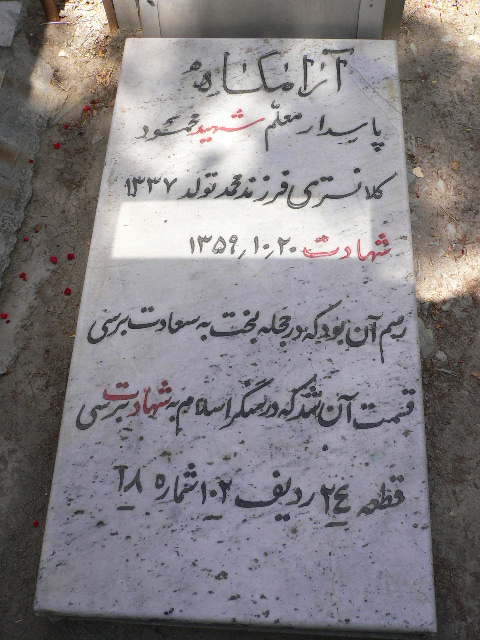 آرامگاه
پاسدار معلّم شهید محمود
کلانتری فرزند محمد تولد ۱۳۳۷
شهادت ۱۳۵۹٫۱۰٫۲۰
رسم آن بود که در حجله بخت به سعادت برسی
قسمت آن شد که در سنگر اسلام به شهادت برسی
قطعه ۲۴ ردیف ۱۰۲ شماره ۱۸